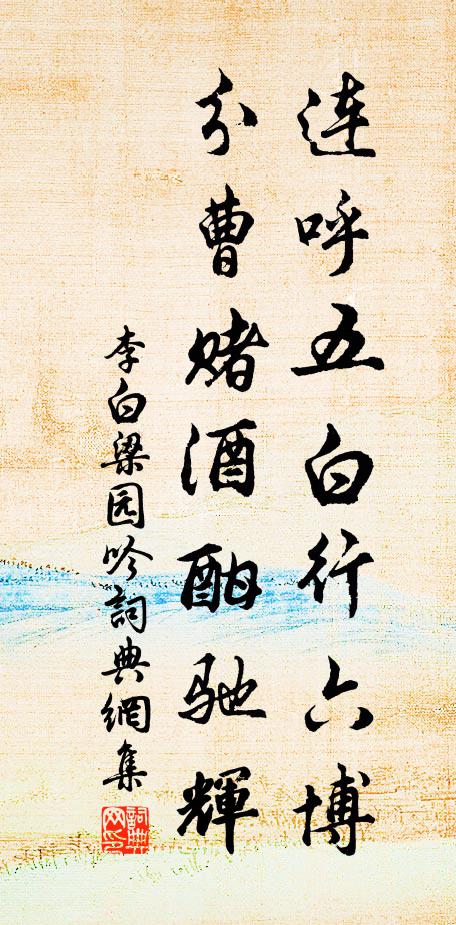 连呼五白行六博
分曹赌酒酣驰輝
李白梁园吟詞典網集